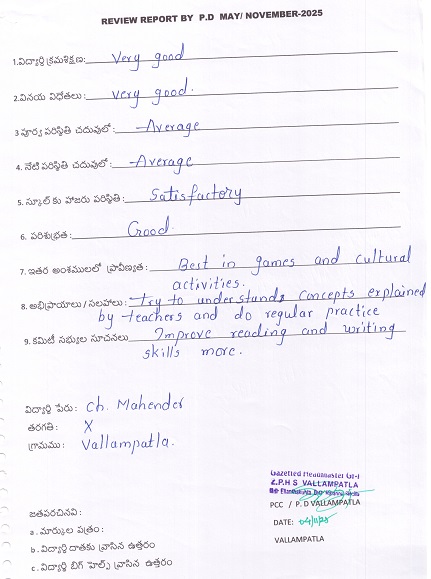 REVIEW REPORT BY P.D MAY/ NOVEMBER-2025
1.విద్యార్థి క్రమశిక్షణ: Very good
2.వినయ విధేతలు: very good.
3 పూర్వ పరిస్థితి చదువులో: Average
4. నేటి పరిస్థితి చదువులో: Average
5. స్కూల్ కు హాజరు పరిస్థితి: Satisfactory
6. పరిశుభ్రత: Good.
7. ఇతర అంశములలో ప్రావీణ్యత: Best in games and cultural
activities.
8. అభిప్రాయాలు / సలహాలు: Try to understands concepts explained
by teachers and do regular practice
9. కమిటీ సభ్యుల సూచనలు Improve reading and writing
skills more.
విద్యార్థి పేరు: Ch. Mahender
తరగతి: X
గ్రామము: Vallampatla.
Gazetted Headmaster Gr-I
Z.P.H S VALLAMPATLA
PCC / P. D VALLAMPATLA
DATE: 04/11/25
VALLAMPATLA
జతపరచినవి:
a. మార్కుల పత్రం:
b. విద్యార్థి దాతకు వ్రాసిన ఉత్తరం
c. విద్యార్థి బిగ్ హెల్ప్ వ్రాసిన ఉత్తరం